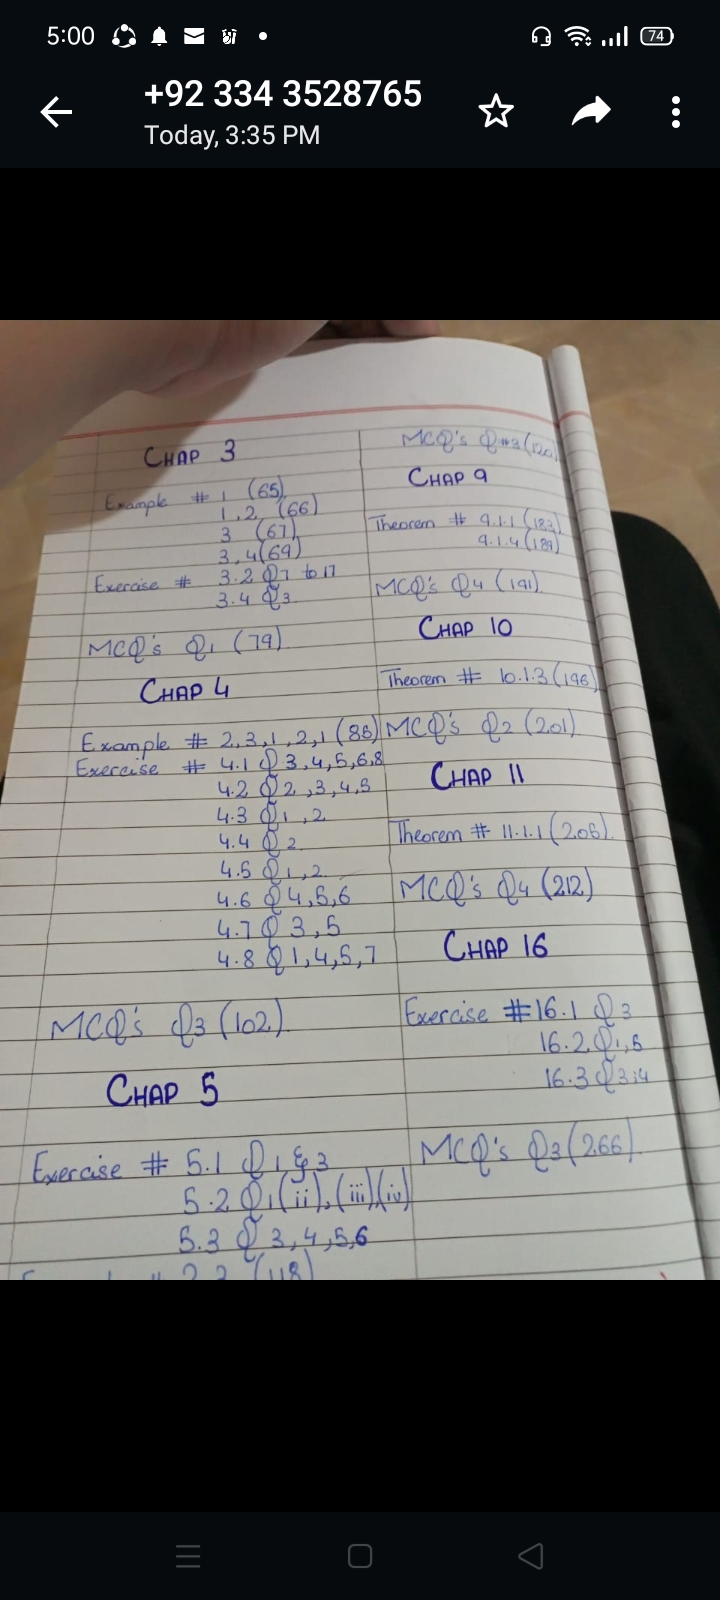 5:00
74
+92 334 3528765
Today, 3:35 PM
CHAP 3
Example # 1 (65)
1,2 (66)
3 (67)
3,4(69)
Exercise # 3.2 Q7 to 17
3.4 Q3
MCQ's Q1 (79)
CHAP 4
Example # 2,3,1,2,1 (85)
Exercise # 4.1 Q 3,4,5,6,8
4.2 Q2,3,4,5
4.3 Q1,2
4.4 Q2
4.5 Q1,2
4.6 Q4,5,6
4.7 Q 3,5
4.8 Q 1,4,5,7
MCQ's Q3 (102)
CHAP 5
Exercise # 5.1 Q1 & 3
5.2 Q1(ii),(iii)(iv)
5.3 Q 3,4,5,6
2,3 (118)
MCQ's Q#3(120)
CHAP 9
Theorem # 9.1.1 (183)
9.1.4 (189)
MCQ's Q4 (191)
CHAP 10
Theorem # 10.1.3(196)
MCQ's Q2 (201)
CHAP 11
Theorem # 11.1.1(206)
MCQ's Q4 (212)
CHAP 16
Exercise #16.1 Q3
16.2 Q1,5
16.3 Q3,4
MCQ's Q3(266)